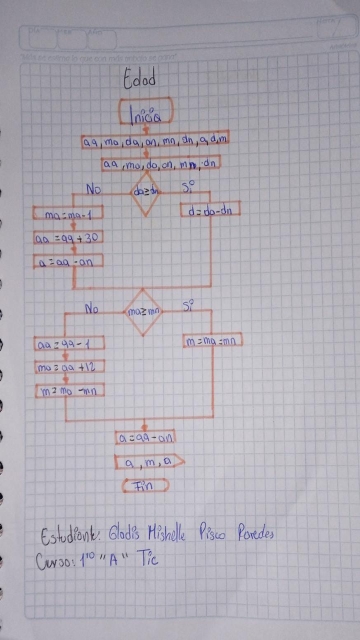 Edad
Inicia
aa, ma, da, an, mn, dn, a, d, m
aa, ma, da, an, mn, dn
No
da≥dn
Si
ma=ma-1
d=da-dn
aa=aa+30
a=aa-an
No
ma≥mn
Si
aa=aa-1
m=ma=mn
ma=aa+12
m=ma-mn
a=aa-an
a, m, a
Fin
Estudiante: Gladis Mishelle Pisco Paredes
Curso: 1ro "A" Tic